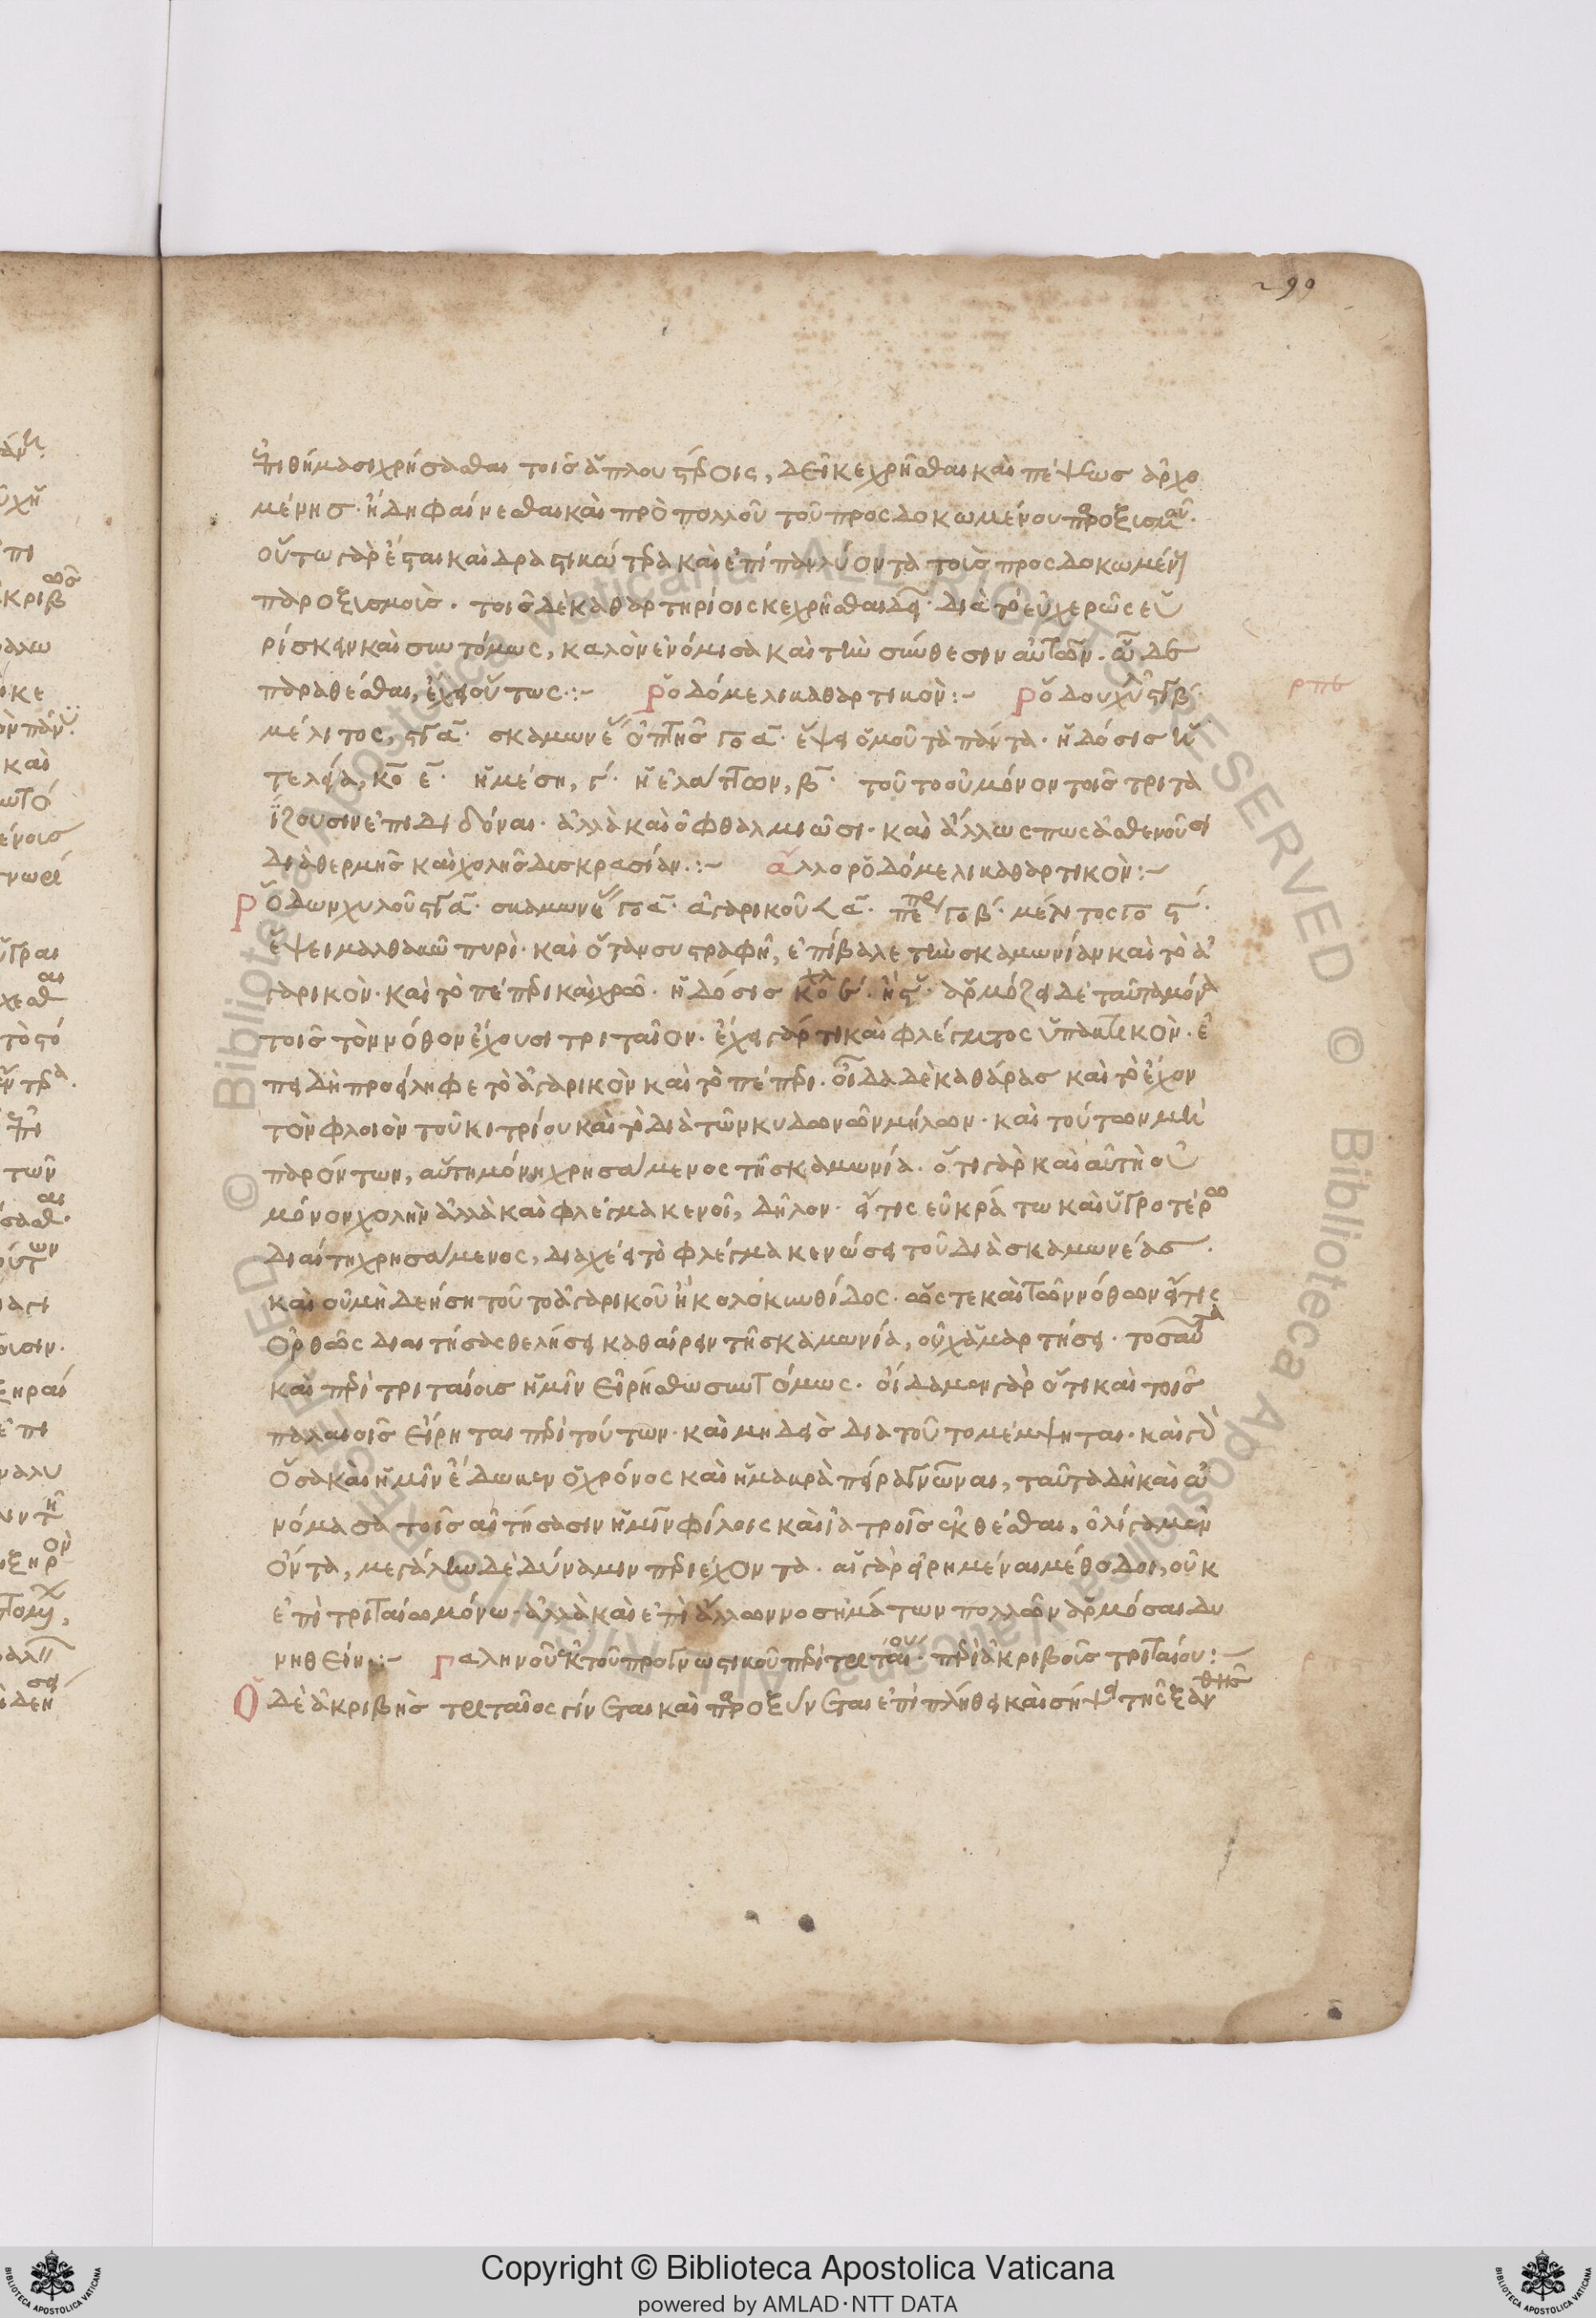 299
ἐπιθήμασι χρήσασθαι τοῖς ἁπλουστέροις, δεῖ κεχρῆσθαι καὶ πέψεως ἀρχο
μένης ἤδη φαίνεσθαι καὶ πρὸ πολλοῦ τοῦ προσδοκωμένου παροξισμοῦ·
οὕτω γὰρ ἔσται καὶ δραστικώτερα καὶ ἐπιπαύοντα τοῖς προσδοκωμένοις
παροξισμοῖς. τοῖς δὲ καθαρτηρίοις κεχρῆσθαι δεῖ· διὰ τὸ εὐχερῶς εὑ
ρίσκειν καὶ συντόμως, καλὸν ἐνόμισα καὶ τὴν σύνθεσιν αὐτῶν
παραθέσθαι, ἔχει οὕτως :- Ῥοδόμελι καθαρτικόν :- Ῥόδου χυλοῦ β
μέλιτος, α· σκαμωνέας ὀπτῆς γο α· ἕψε ὁμοῦ τὰ πάντα· ἡ δόσις ἡ
τελεία, κο ε· ἡ μέση, γ· ἡ ἐλάττων, β· τοῦτο οὐ μόνον τοῖς τριτα
ΐζουσιν ἐπιδιδόναι· ἀλλὰ καὶ ὀφθαλμιῶσι· καὶ ἄλλως πως ἀσθενοῦσι
διὰ θερμῆς καὶ χολῆς δισκρασίαν :- ἄλλο ροδόμελι καθαρτικόν :-
Ῥόδων χυλοῦ α· σκαμωνέας γο α· ἀγαρικοῦ α· πεπέρεως γο β· μέλιτος γο ϛ·
ἕψει μαλθακῶ πυρὶ· καὶ ὅταν συστραφῆ, ἐπίβαλε τὴν σκαμωνίαν καὶ τὸ ἀ
γαρικὸν· καὶ τὸ πέπερι καὶ χρῶ· ἡ δόσις ἁρμόζει δὲ ταῦτα μόνα
τοῖς τὸν νόθον ἔχουσι τριταῖον. ἔχει γάρ τι καὶ φλέγματος ὑπακτικὸν· ἐ
πειδὴ προσείληφε τὸ ἀγαρικὸν καὶ τὸ πέπερι. οἶδα δὲ καθάρας καὶ τὸ ἔχον
τὸν φλοιὸν τοῦ κιτρίου καὶ τὸ διὰ τῶν κυδωνῶν μήλων· καὶ τούτων μὴ
παρόντων, αὐτῆ μόνη χρησάμενος τῆ σκαμωνία. ὅτι γὰρ καὶ αὐτὴ οὐ
μόνον χολὴν ἀλλὰ καὶ φλέγμα κενοῖ, δῆλον· εἴ τις εὐκράτω καὶ ὑγροτέρω
διαίτη χρησάμενος, διαχέει τὸ φλέγμα κενώσει τοῦ διὰ σκαμωνέας.
καὶ οὐ μὴ δεήση τοῦτο ἀγαρικοῦ ἢ κολοκινθίδος· ὥστε καὶ τῶν νόθων εἴ τις
ὀρθῶς διαιτήσας θελήσει καθαίρειν τῆ σκαμωνία, οὐχ ἁμαρτήσει. τοσαῦτα
καὶ περὶ τριταίοις ἡμῖν εἰρήσθω συντόμως. οἴδαμεν γὰρ ὅτι καὶ τοῖς
παλαιοῖς εἴρηται περὶ τούτων· καὶ μηδεὶς διὰ τοῦτο μέμψηται· καὶ γὰρ
ὅσα καὶ ἡμῖν ἔδωκεν ὁ χρόνος καὶ ἡ μακρὰ πεῖρα γνῶναι, ταῦτα δὴ καὶ ὠ
νόμασα τοῖς αἰτήσασιν ἡμῖν φίλοις καὶ ἰατροῖς ἐκθέσθαι, ὀλίγα μὲν
ὄντα, μεγάλην δὲ δύναμιν περιέχοντα. αἱ γὰρ εἰρημέναι μέθοδοι, οὐκ
ἐπὶ τριταίω μόνω· ἀλλὰ καὶ ἐπὶ ἄλλων νοσημάτων πολλῶν ἁρμόσαι δυ
νηθεῖεν :- Γαληνοῦ ἐκ τοῦ προγνωστικοῦ περὶ τριταίου· περὶ ἀκριβοῦς τριταίου :-
Ὁ δὲ ἀκριβὴς τριταῖος γίνεται καὶ παροξύνεται ἐπὶ πλήθει καὶ σήψει τῆς ξανθῆς
Copyright © Biblioteca Apostolica Vaticana
powered by AMLAD·NTT DATA